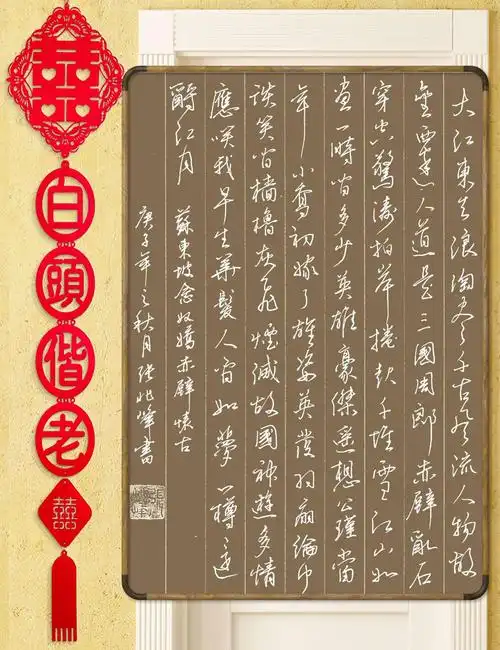 大江東去浪淘盡千古風流人物故
壘西邊人道是三國周郎赤壁亂石
穿空驚濤拍岸捲起千堆雪江山如
畫一時間多少英雄豪傑遙想公瑾當
年小喬初嫁了雄姿英發羽扇綸巾
談笑間檣櫓灰飛煙滅故國神遊多情
應笑我早生華髮人間如夢一樽還
酹江月
蘇東坡念奴嬌赤壁懷古
庚子年之秋月張兆峰書
囍
白頭偕老
囍